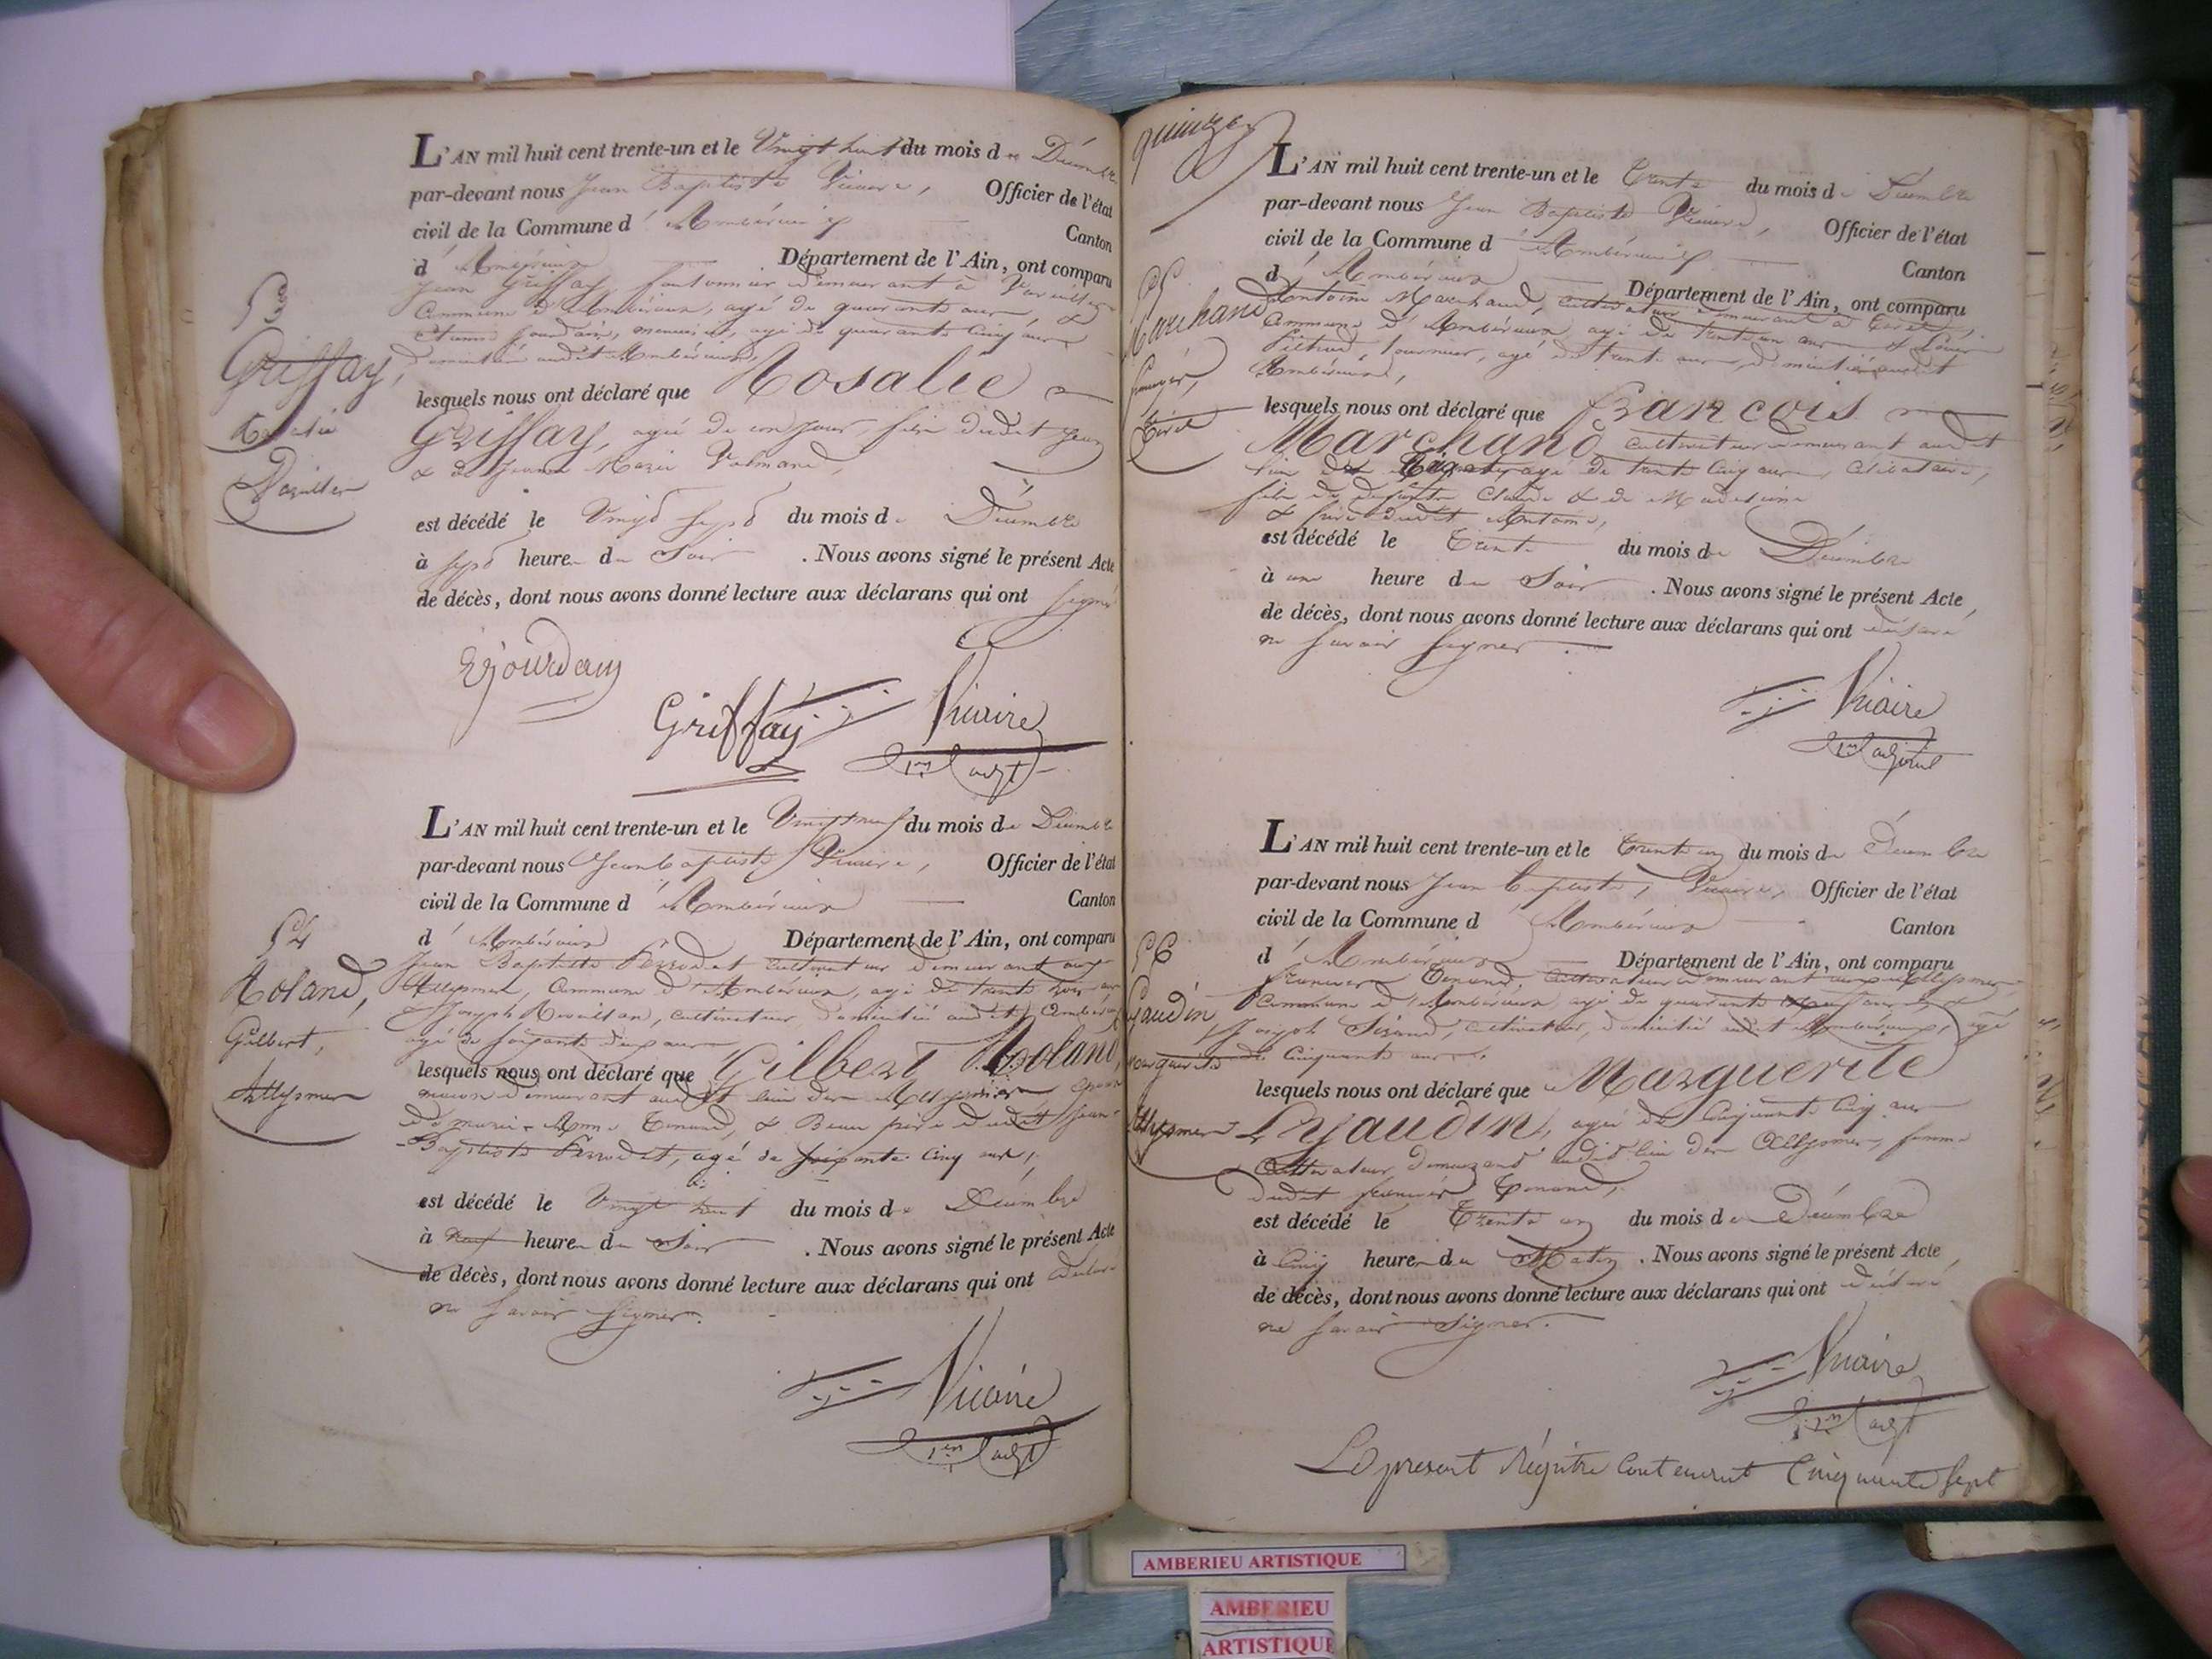 53
Griffay,
Rosalie
Vareilles
L'AN mil huit cent trente-un et le Vingt huit du mois de Décembre
par-devant nous Jean Baptiste Vicaire, Officier de l'état
civil de la Commune d' Ambérieux Canton
d' Ambérieux Département de l'Ain, ont comparu
Jean Griffay, demeurant à Vareilles
Commune d'Ambérieux, agé de quarante ans, &
Jourdain, menuisier, agé de quarante cinq ans
domicilié audit Ambérieux,
lesquels nous ont déclaré que Rosalie
Griffay, agée de un jour, fille dudit Jean
& de Jeanne Marie
est décédé le Vingt sept du mois de Décembre
à sept heures du Soir. Nous avons signé le présent Acte
de décès, dont nous avons donné lecture aux déclarans qui ont signé
Ejourdain
Griffay
Vicaire
1er adjt
54
Roland,
Gilbert,
Allysmes
L'AN mil huit cent trente-un et le Vingt neuf du mois de Décembre
par-devant nous Jean baptiste Vicaire, Officier de l'état
civil de la Commune d' Ambérieux Canton
d' Ambérieux Département de l'Ain, ont comparu
Jean Baptiste Perrodet cultivateur demeurant aux
Allysmes, Commune d'Ambérieux, agé de trente ans
& Joseph cultivateur, domicilié audit Ambérieux
agé de soixante deux ans
lesquels nous ont déclaré que Gilbert Roland,
maçon demeurant audit lieu des Allysmes époux
de marie Anne Tenand, & Beau père dudit Jean-
Baptiste Perrodet, agé de soixante cinq ans,
est décédé le Vingt huit du mois de Décembre
à neuf heures du Soir. Nous avons signé le présent Acte
de décès, dont nous avons donné lecture aux déclarans qui ont déclaré
ne savoir signer.
Vicaire
1er adjt
quinze
55
Marchand
françois,
Tiret
L'AN mil huit cent trente-un et le Trente du mois de Décembre
par-devant nous Jean Baptiste Vicaire, Officier de l'état
civil de la Commune d' Ambérieux Canton
d' Ambérieux Département de l'Ain, ont comparu
Antoine Marchand, cultivateur demeurant à Tiret,
Commune d'Ambérieux, agé de trente un ans & Louis
agé de trente ans, domicilié audit
Ambérieux,
lesquels nous ont déclaré que françois
Marchand cultivateur demeurant audit
lieu de Tiret, agé de trente cinq ans, célibataire,
fils de defunte Claude & de Madelaine
& frère dudit Antoine,
est décédé le Trente du mois de Décembre
à une heure du Soir. Nous avons signé le présent Acte,
de décès, dont nous avons donné lecture aux déclarans qui ont déclaré
ne savoir signer.
Vicaire
1er adjoint
56
Gaudin
marguerite
Allysmes
L'AN mil huit cent trente-un et le Trente un du mois de Décembre
par-devant nous Jean baptiste, Vicaire, Officier de l'état
civil de la Commune d' Ambérieux Canton
d' Ambérieux Département de l'Ain, ont comparu
Tenand, cultivateur demeurant aux Allysmes,
Commune d'Ambérieux, agé de quarante ans, &
Joseph cultivateur, domicilié audit Ambérieux, agé
de Cinquante ans.
lesquels nous ont déclaré que Marguerite
Gaudin, agée de Cinquante Cinq ans
Cultivateur, demeurant audit lieu des Allysmes, femme
dudit Tenand,
est décédé le Trente un du mois de Décembre
à Cinq heures du Matin. Nous avons signé le présent Acte,
de décès, dont nous avons donné lecture aux déclarans qui ont déclaré
ne savoir signer.
Vicaire
1er adjt
Le present Régitre contenant Cinquante sept
AMBERIEU ARTISTIQUE
AMBERIEU
ARTISTIQUE